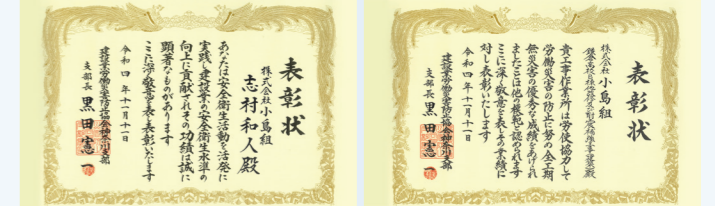 表彰状
株式会社小島組
志村和人殿
あなたは安全衛生活動を活発に
実践し建設業の安全衛生水準の
向上に貢献されその功績は誠に
顕著なものがあります
ここに深く敬意を表し表彰いたします
令和四年十一月十一日
建設業労働災害防止協会神奈川支部
支部長 黒田憲一
表彰状
株式会社小島組
貴工事作業所は労使協力して
労働災害の防止に努め全工期
無災害の優秀な成績をあげられ
ましたことは他の模範と認められます
ここに深く敬意を表しその業績に
対し表彰いたします
令和四年十一月十一日
建設業労働災害防止協会神奈川支部
支部長 黒田憲一